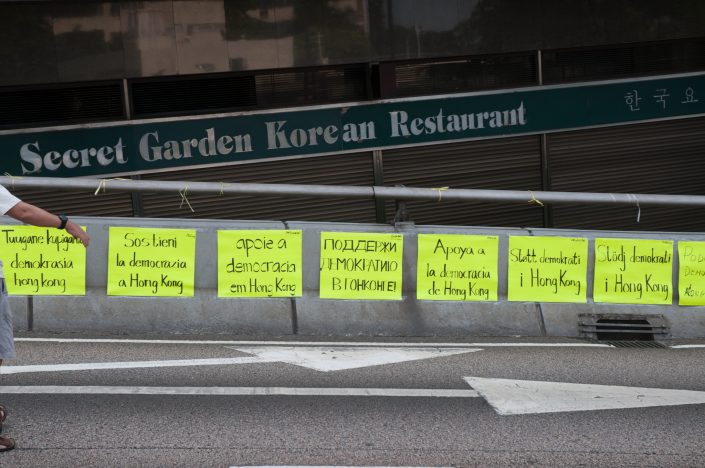 Secret Garden Korean Restaurant
한국요
Tuugane kupigania
demokrasia
hong kong
Sostieni
la democrazia
a Hong Kong
apoie a
democracia
em Hong Kong
ПОДДЕРЖИ
ДЕМОКРАТИЮ
В ГОНКОНГЕ!
Apoya a
la democracia
de Hong Kong
Støtt demokrati
i Hong Kong
Stödj demokrati
i Hong Kong